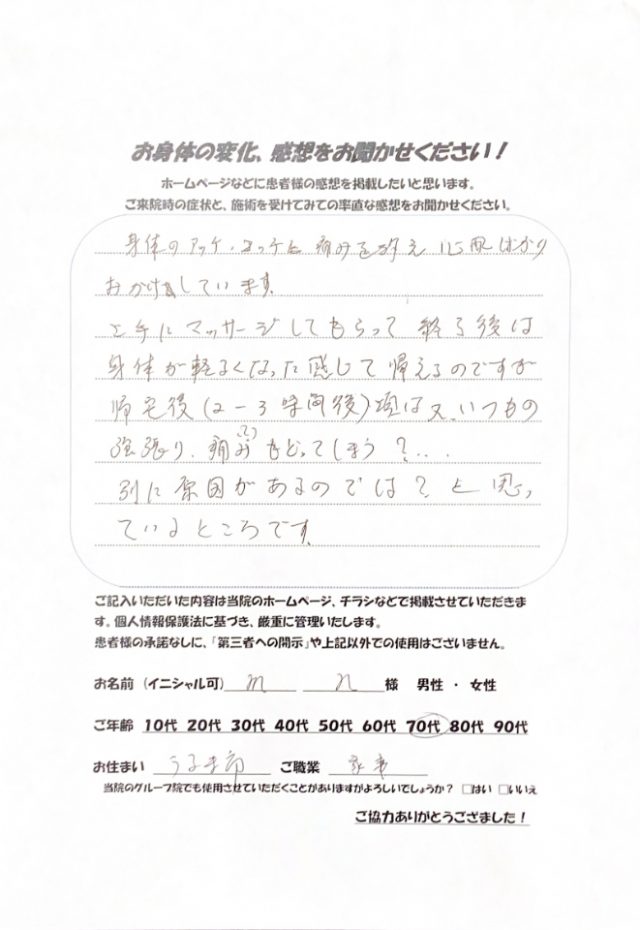 お身体の変化、感想をお聞かせください！
ホームページなどに患者様の感想を掲載したいと思います。
ご来院時の症状と、施術を受けてみての率直な感想をお聞かせください。
身体の 痛みを 心配ばかり
おかけしています。
上手にマッサージしてもらって 終了後は
身体が軽くなった感じて帰えるのですが
帰宅後(2ー3時間後)頃は又、いつもの
張り、痛み もどってしまう？...
別に原因があるのでは？と思っ
ているところです。
ご記入いただいた内容は当院のホームページ、チラシなどで掲載させていただきま
す。個人情報保護法に基づき、厳重に管理いたします。
患者様の承諾なしに、「第三者への開示」や上記以外での使用はございません。
お名前（イニシャル可） m n 様 男性 ・ 女性
ご年齢 10代 20代 30代 40代 50代 60代 70代 80代 90代
お住まい うるま市 ご職業 家事
当院のグループ院でも使用させていただくことがありますがよろしいでしょうか？ □はい □いいえ
ご協力ありがとうござまました！